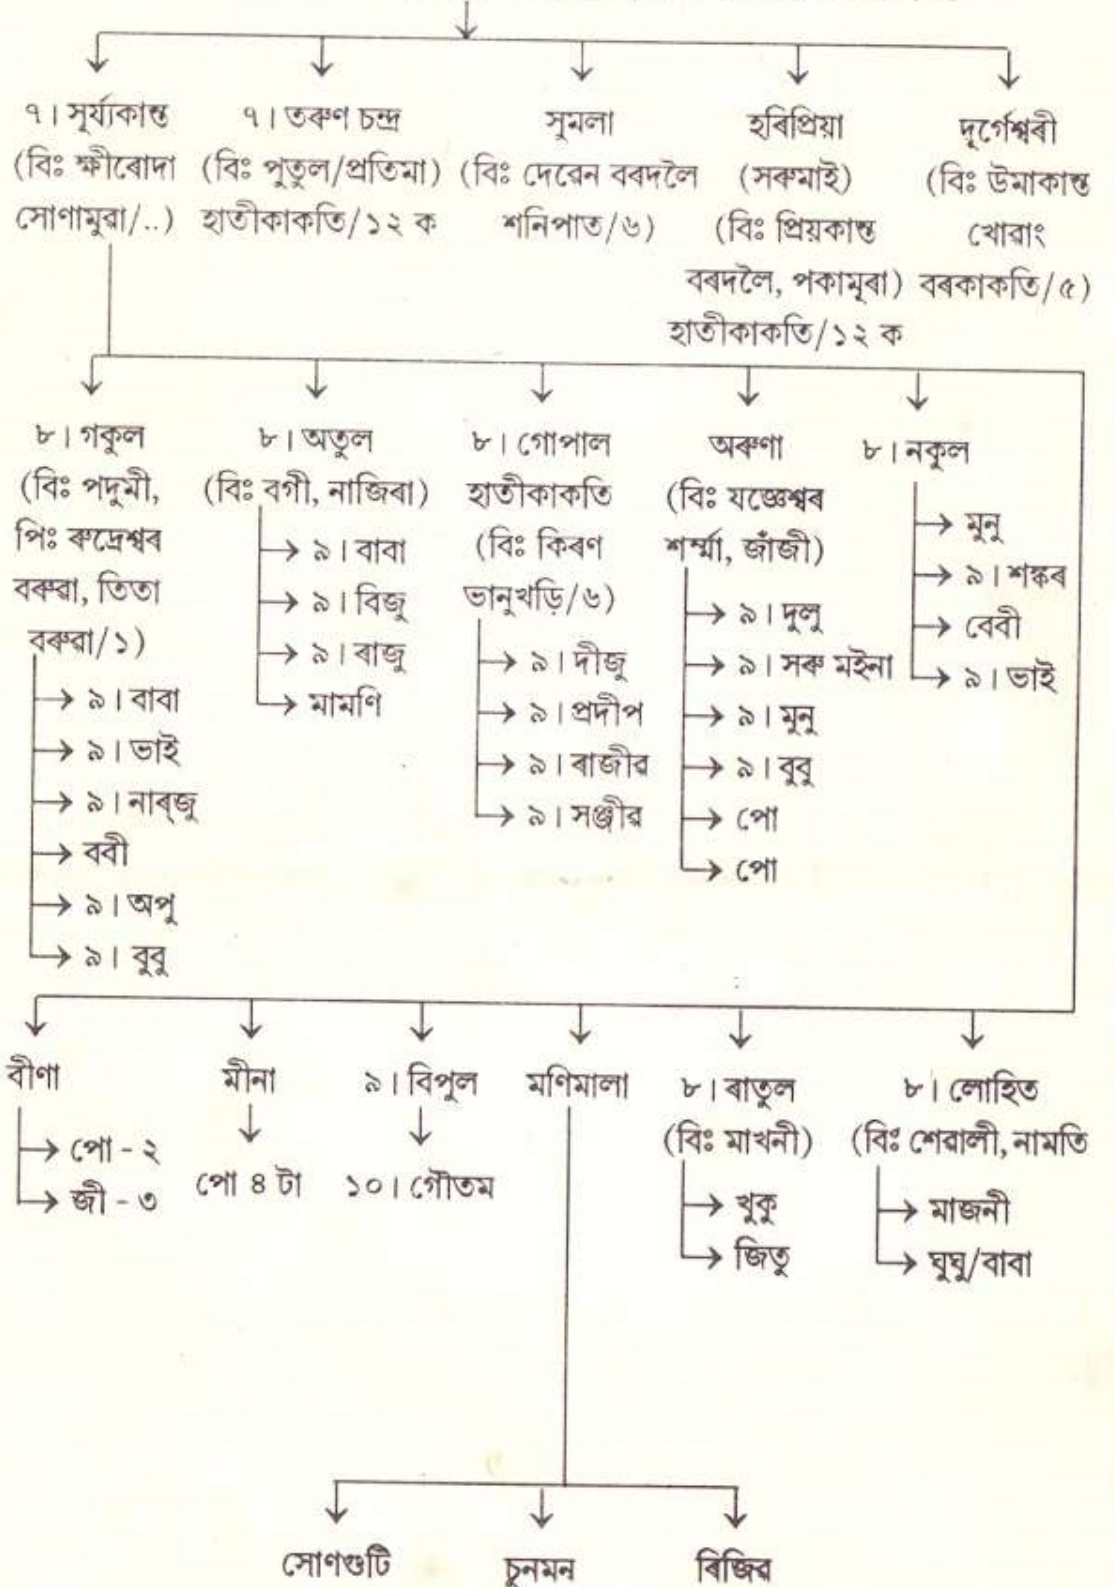 ৭। সূৰ্য্যকান্ত
(বিঃ ক্ষীৰোদা
সোণামুৱা/..)
৭। তৰুণ চন্দ্ৰ
(বিঃ পুতুল/প্ৰতিমা)
হাতীকাকতি/১২ ক
সুমলা
(বিঃ দেৱেন বৰদলৈ
শনিপাত/৬)
হৰিপ্ৰিয়া
(সৰুমাই)
(বিঃ প্ৰিয়কান্ত
বৰদলৈ, পকামূৰা)
হাতীকাকতি/১২ ক
দূৰ্গেশ্বৰী
(বিঃ উমাকান্ত
খোৱাং
বৰকাকতি/৫)
৮। গকুল
(বিঃ পদুমী,
পিঃ ৰুদ্ৰেশ্বৰ
বৰুৱা, তিতা
বৰুৱা/১)
→ ৯। বাবা
→ ৯। ভাই
→ ৯। নাৰ্জু
→ ববী
→ ৯। অপু
→ ৯। বুবু
৮। অতুল
(বিঃ বগী, নাজিৰা)
→ ৯। বাবা
→ ৯। বিজু
→ ৯। ৰাজু
→ মামণি
৮। গোপাল
হাতীকাকতি
(বিঃ কিৰণ
ভানুখড়ি/৬)
→ ৯। দীজু
→ ৯। প্ৰদীপ
→ ৯। ৰাজীৱ
→ ৯। সঞ্জীৱ
অৰুণা
(বিঃ যজ্ঞেশ্বৰ
শৰ্ম্মা, জাঁজী)
→ ৯। দুলু
→ ৯। সৰু মইনা
→ ৯। মুনু
→ ৯। বুবু
→ পো
→ পো
৮। নকুল
→ মুনু
→ ৯। শঙ্কৰ
→ বেবী
→ ৯। ভাই
বীণা
→ পো - ২
→ জী - ৩
মীনা
পো ৪ টা
৯। বিপুল
১০। গৌতম
মণিমালা
৮। ৰাতুল
(বিঃ মাখনী)
→ খুকু
→ জিতু
৮। লোহিত
(বিঃ শেৱালী, নামতি
→ মাজনী
→ ঘুঘু/বাবা
সোণগুটি
চুনমন
ৰিজিৱ